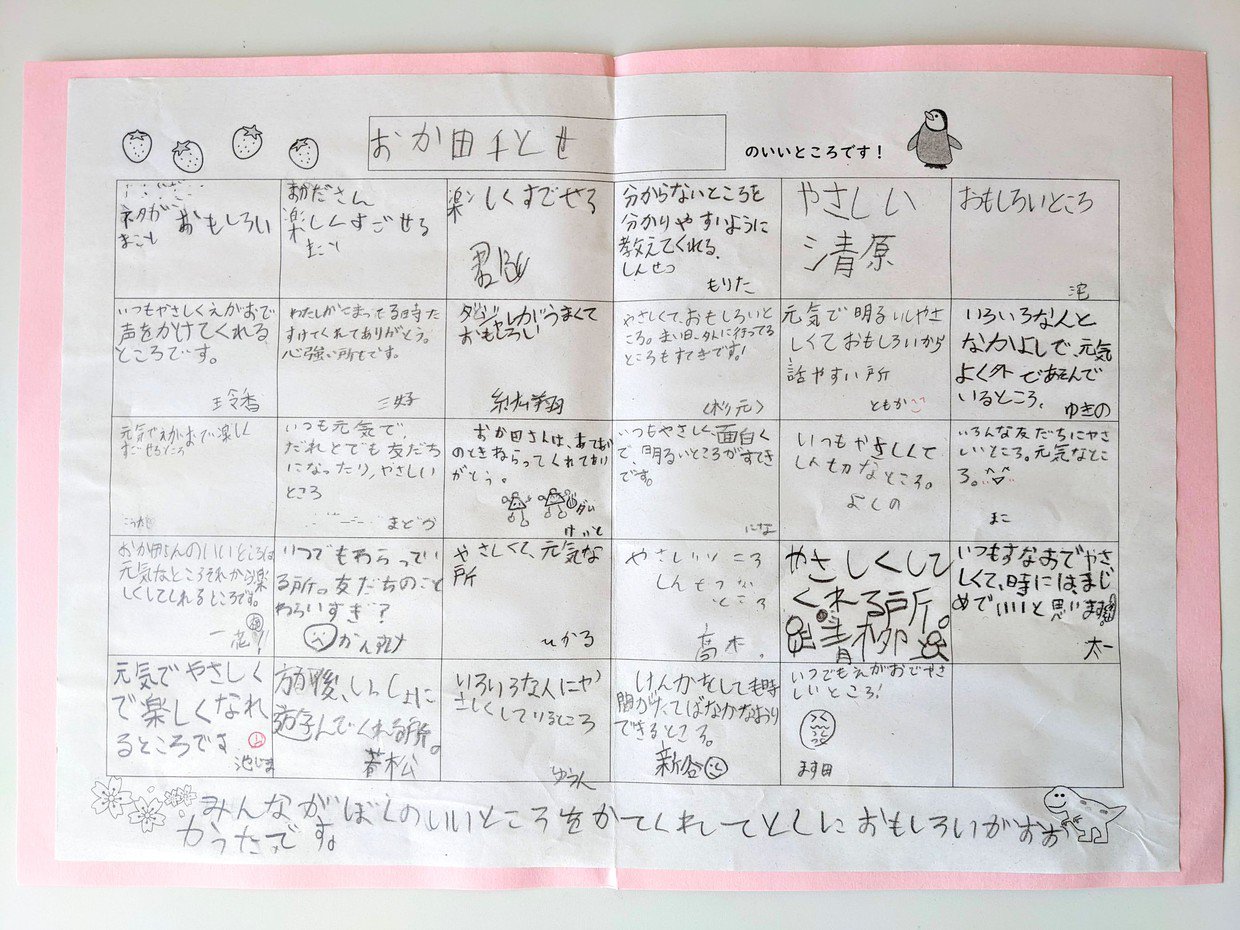 おか田ちとせ
のいいところです！
ネタが おもしろい
まこと
おかださん
楽しくすごせる
まこ
楽しくすごせる
分からないところを
分かりやすいように
教えてくれる。
しんせつ
もりた
やさしい
清原
おもしろいところ
いつもやさしくえがおで
声をかけてくれる
ところです。
玲香
わたしがこまってる時た
すけてくれてありがとう。
心強い所です。
三好
ダジャレがうまくて
おもしろい
やさしくて、おもしろいと
ころ。
ところもすてきです!
(杉元)
元気で明るいしやさ
しくておもしろいから
話やすい所
ともか
いろいろな人と
なかよしで、元気
よく外であそんで
いるところ。
ゆきの
元気でえがおで楽しく
すごせるところ
いつも元気で
だれとでも友だち
になったり、やさしい
ところ
まどか
おか田さんは、あてあい
のときねらってくれてあり
がとう。
けいと
いつもやさしく、面白く
で明るいところがすてき
です。
にな
いつもやさしくて
しん切なところ。
よしの
いろんな友だちにやさ
しいところ。元気なとこ
ろ。^^
まこ
おか田さんのいいところは
元気なところそれから楽
しくしてくれるところです。
いつでもわらってい
る所。友だちのこと
わらいすぎ?
やさしくて、元気な
所
ひかる
やさしいところ
しんせつな
ところ
高木。
やさしくして
くれる所。
青柳
いつもすなおでやさ
しくて、時には、まじ
めでいいと思います
太一
元気でやさしく
で楽しくなれ
るところです
池じま
放か後、いっしょに
遊んでくれる所。
若松
いろいろな人にやさ
しくしているところ
ゆうん
けんかをしても時
間がたてばなかなおり
できるところ。
新谷
いつでもえがおでやさ
しいところ!
ます田
みんながぼくのいいところをかてくれてとしにおもしろいがおお
かうたです。